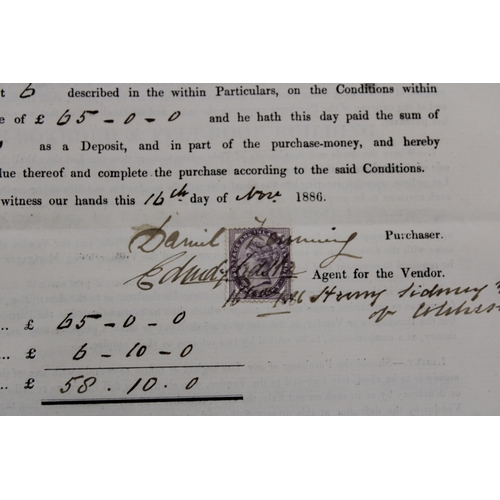 t 6 described in the within Particulars, on the Conditions within
e of £ 65-0-0 and he hath this day paid the sum of
as a Deposit, and in part of the purchase-money, and hereby
lue thereof and complete the purchase according to the said Conditions.
witness our hands this 16th day of Nov. 1886.
Daniel Purchaser.
Agent for the Vendor.
Henry Sidney
of
... £ 65-0-0
... £ 6-10-0
... £ 58.10.0